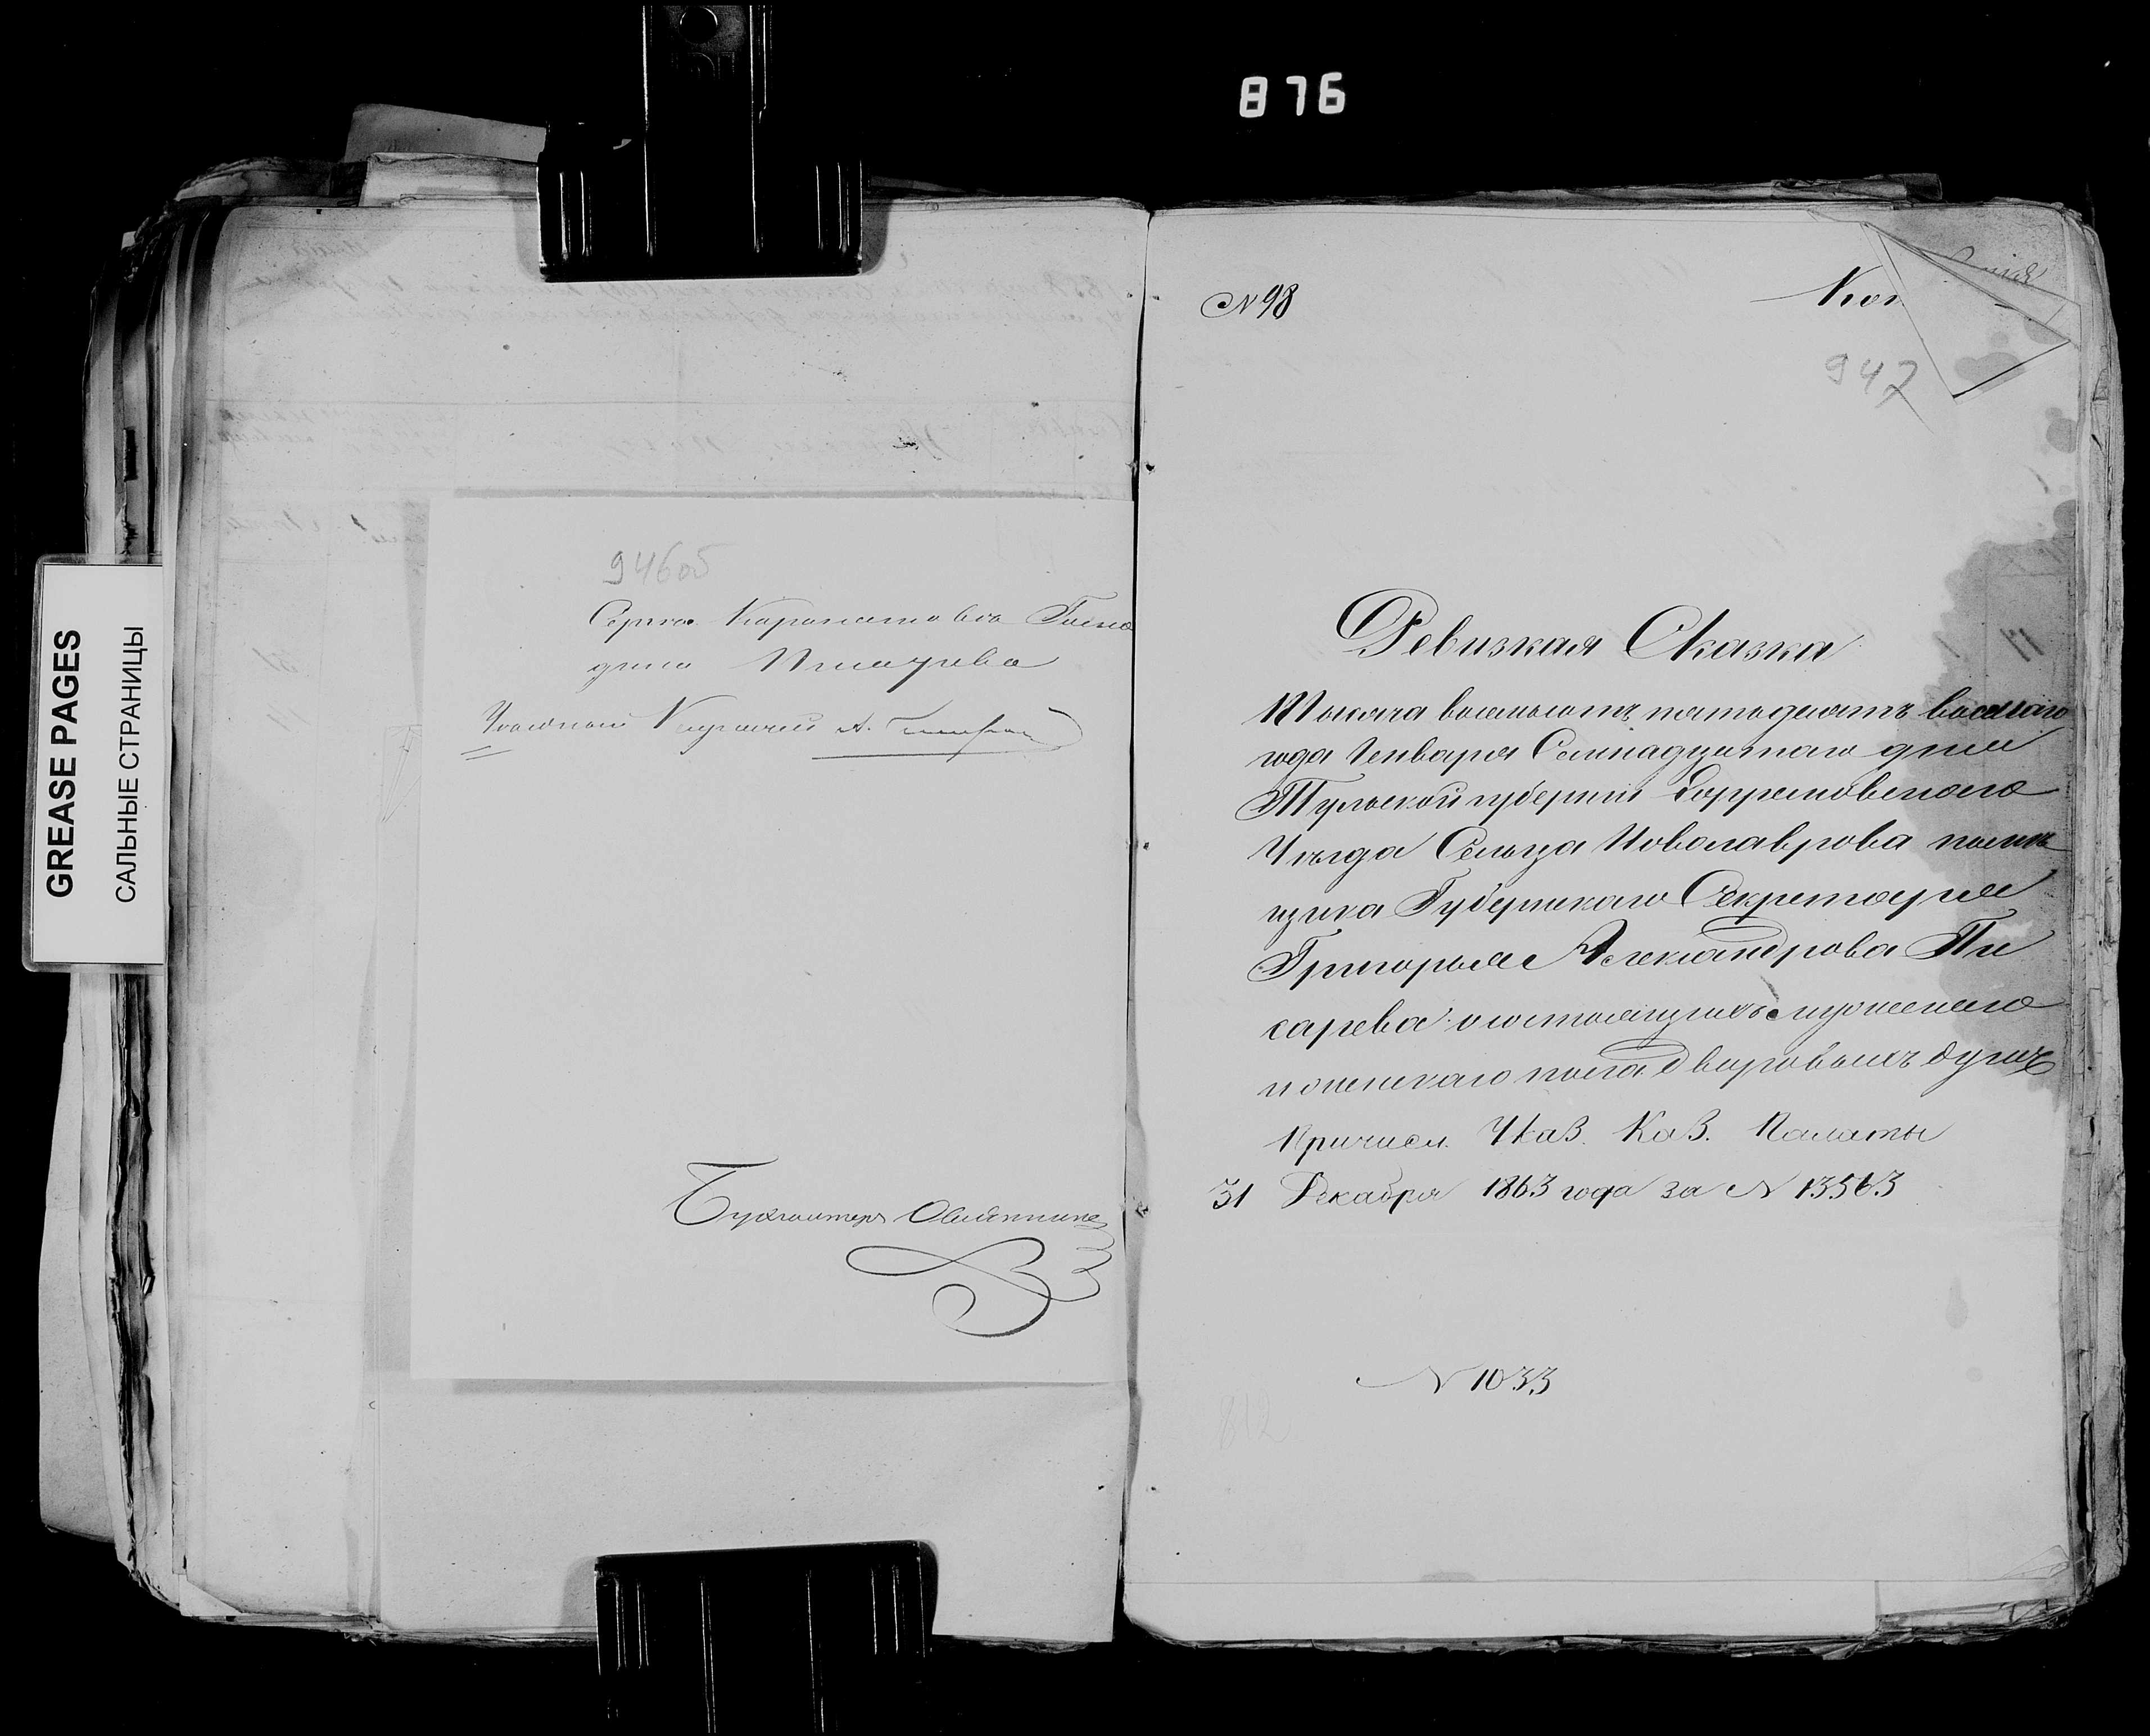 876
GREASE PAGES
САЛЬНЫЕ СТРАНИЦЫ
946об
Сергея Карпова Госпо
дина Писарева
Уѣздный
Бухгалтеръ
N 98
Коп
947
Ревизкая Сказка
Тысяча восемьсотъ пятьдесятъ восмаго
года Генваря Семнадцатаго дня
Тульской губерніи
Уѣзда Сельца Новолаврова помѣ
щика Губернскаго Секретаря
Григорья Александрова Пи
сарева о состоящихъ мужескаго
и женскаго пола дворовыхъ душъ
Причисл. Указ. Каз. Палаты
31 Декабря 1863 года за N 13563
N 1033
812